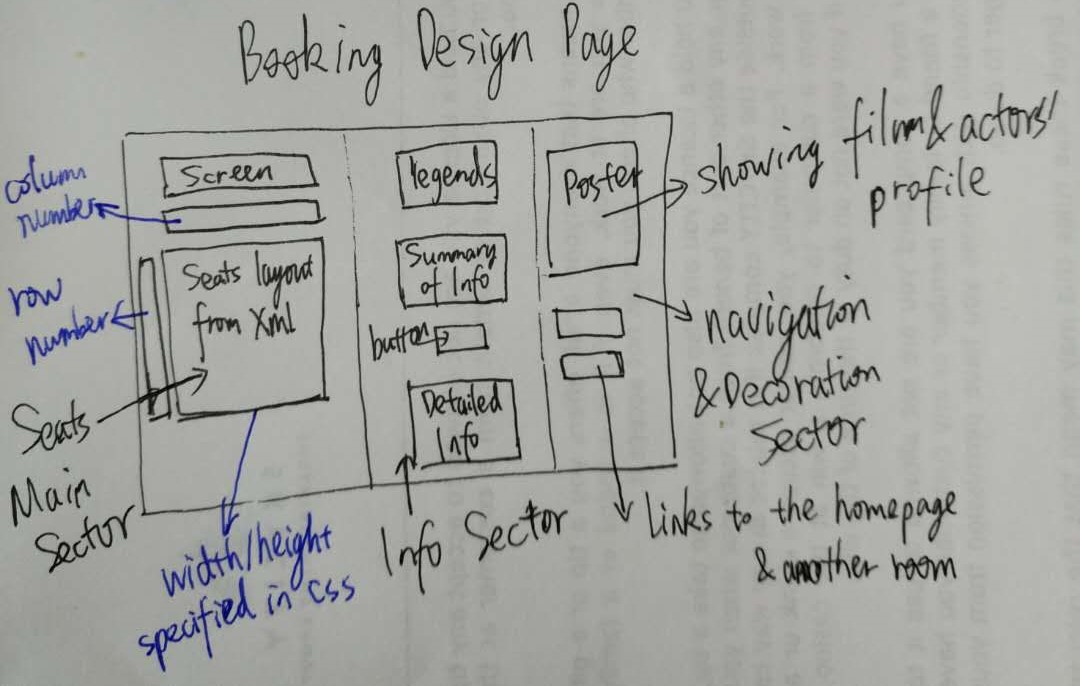 Booking Design Page
column
number
row
number
Screen
Seats layout
from Xml
Seats
Main
Sector
width/height
specified in css
legends
Summary
of Info
button
Detailed
Info
Info Sector
Poster
showing film&actors'
profile
navigation
&Decoration
Sector
Links to the homepage
& another room